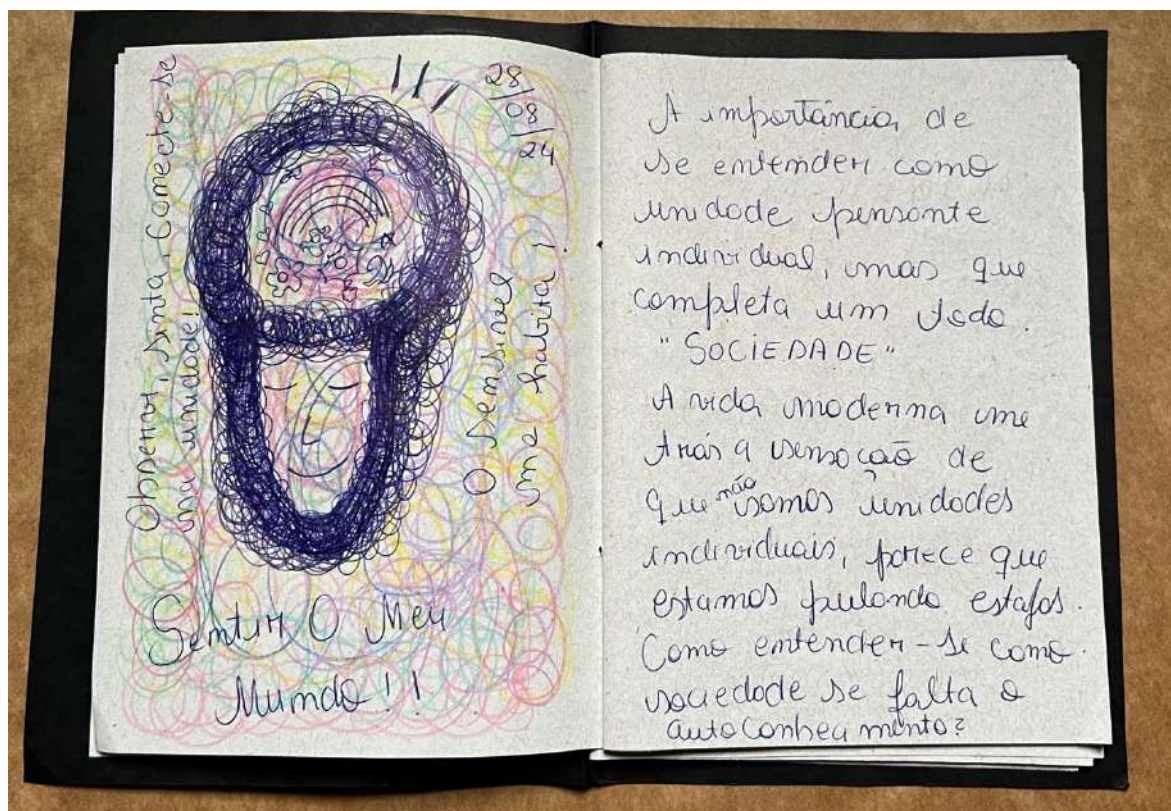 Observe, sinta, Comecte-se
na unidade!
28/
08/
24
O sensível
me habita!
Sentir O Meu
Mundo!!
A importância de
se entender como
unidade pensante
individual, mas que
completa um todo.
"SOCIEDADE"
A vida moderna me
trás a sensação de
que não somos unidades
individuais, parece que
estamos pulando estafas.
Como entender-se como
sociedade se falta o
autoconhecimento?